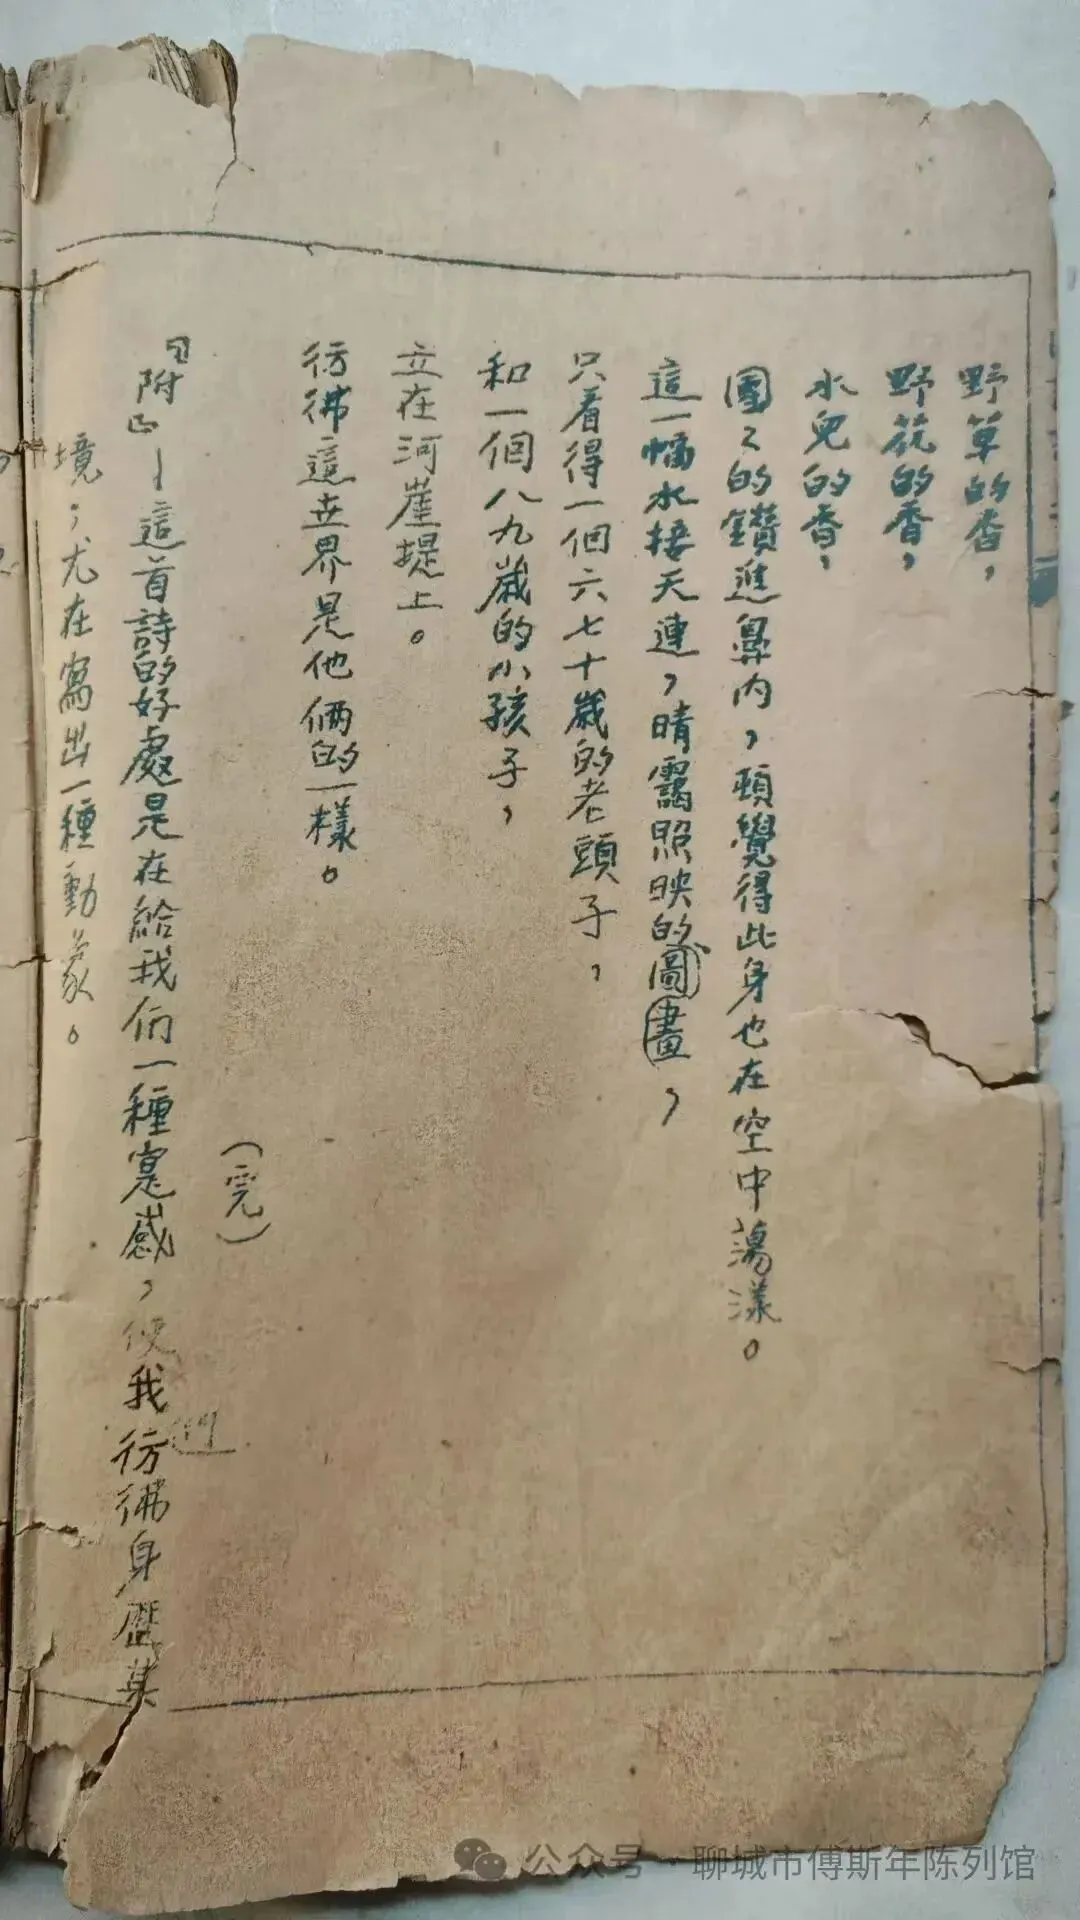 野草的香，
野花的香，
水兒的香，
團々的鑽進鼻内，頓覺得此身也在空中蕩漾。
這一幅水接天連，晴靄照映的圖畫，
只看得一個六七十歲的老頭子，
和一個八九歲的小孩子，
立在河崖提上。
彷彿這世界是他倆的一樣。
（完）
『附』—這首詩的好處是在給我们一種寔感，使我们彷彿身歴某
境，尤在寫出一種動象。
公众号·聊城市傅斯年陈列馆